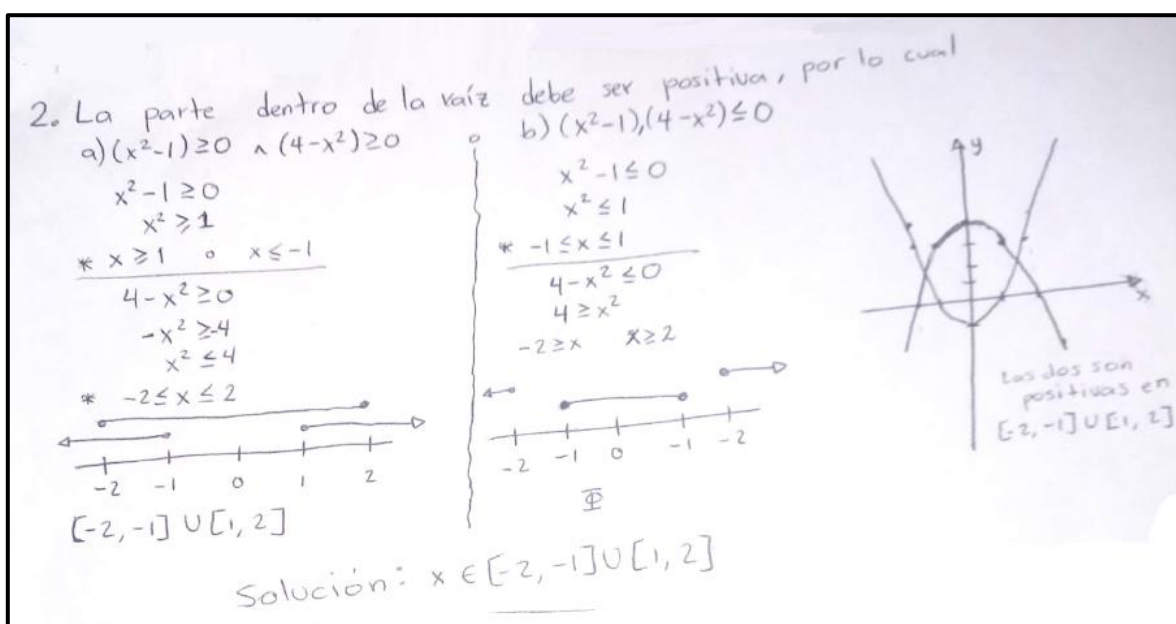 2. La parte dentro de la raíz debe ser positiva, por lo cual
a) (x²-1) ≥ 0 ∧ (4-x²) ≥ 0
x²-1 ≥ 0
x² ≥ 1
* x ≥ 1 o x ≤ -1
4-x² ≥ 0
-x² ≥ -4
x² ≤ 4
* -2 ≤ x ≤ 2
-2 -1 0 1 2
[-2, -1] ∪ [1, 2]
o
b) (x²-1),(4-x²) ≤ 0
x²-1 ≤ 0
x² ≤ 1
* -1 ≤ x ≤ 1
4-x² ≤ 0
4 ≥ x²
-2 ≥ x x ≥ 2
-2 -1 0 -1 -2
Φ
y
x
Las dos son
positivas en
[-2, -1] ∪ [1, 2]
Solución: x ∈ [-2, -1] ∪ [1, 2]